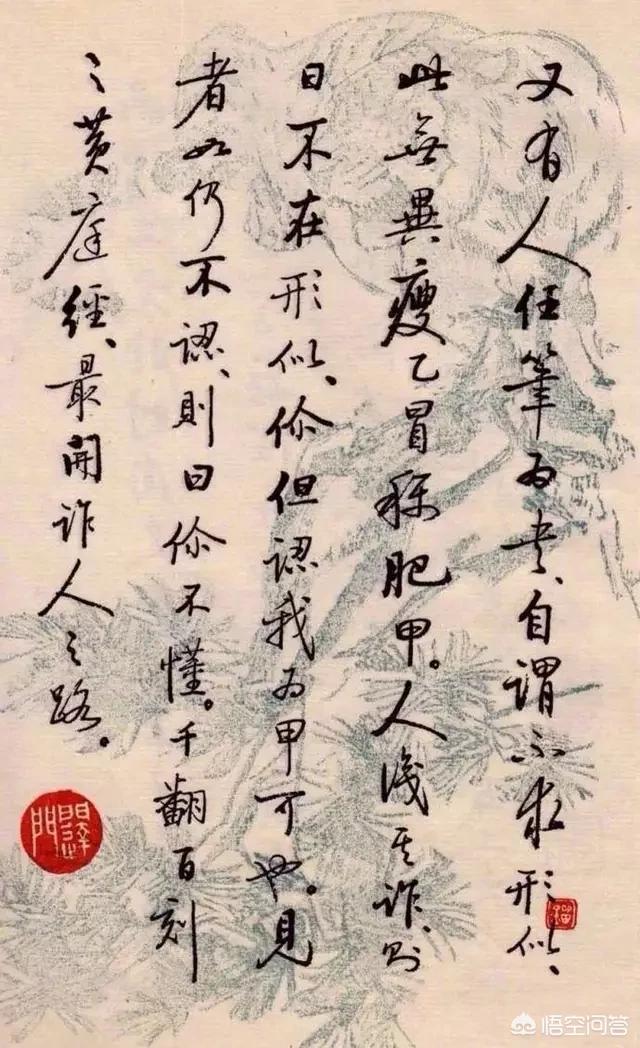 又有人任筆为书、自謂不求形似、
此無異瘦乙冒称肥甲。人識其诈、则
曰不在形似、你但認我为甲可也。見
者如仍不認、則曰你不懂。千翻百刻
之黄庭經、最開诈人之路。
悟空问答